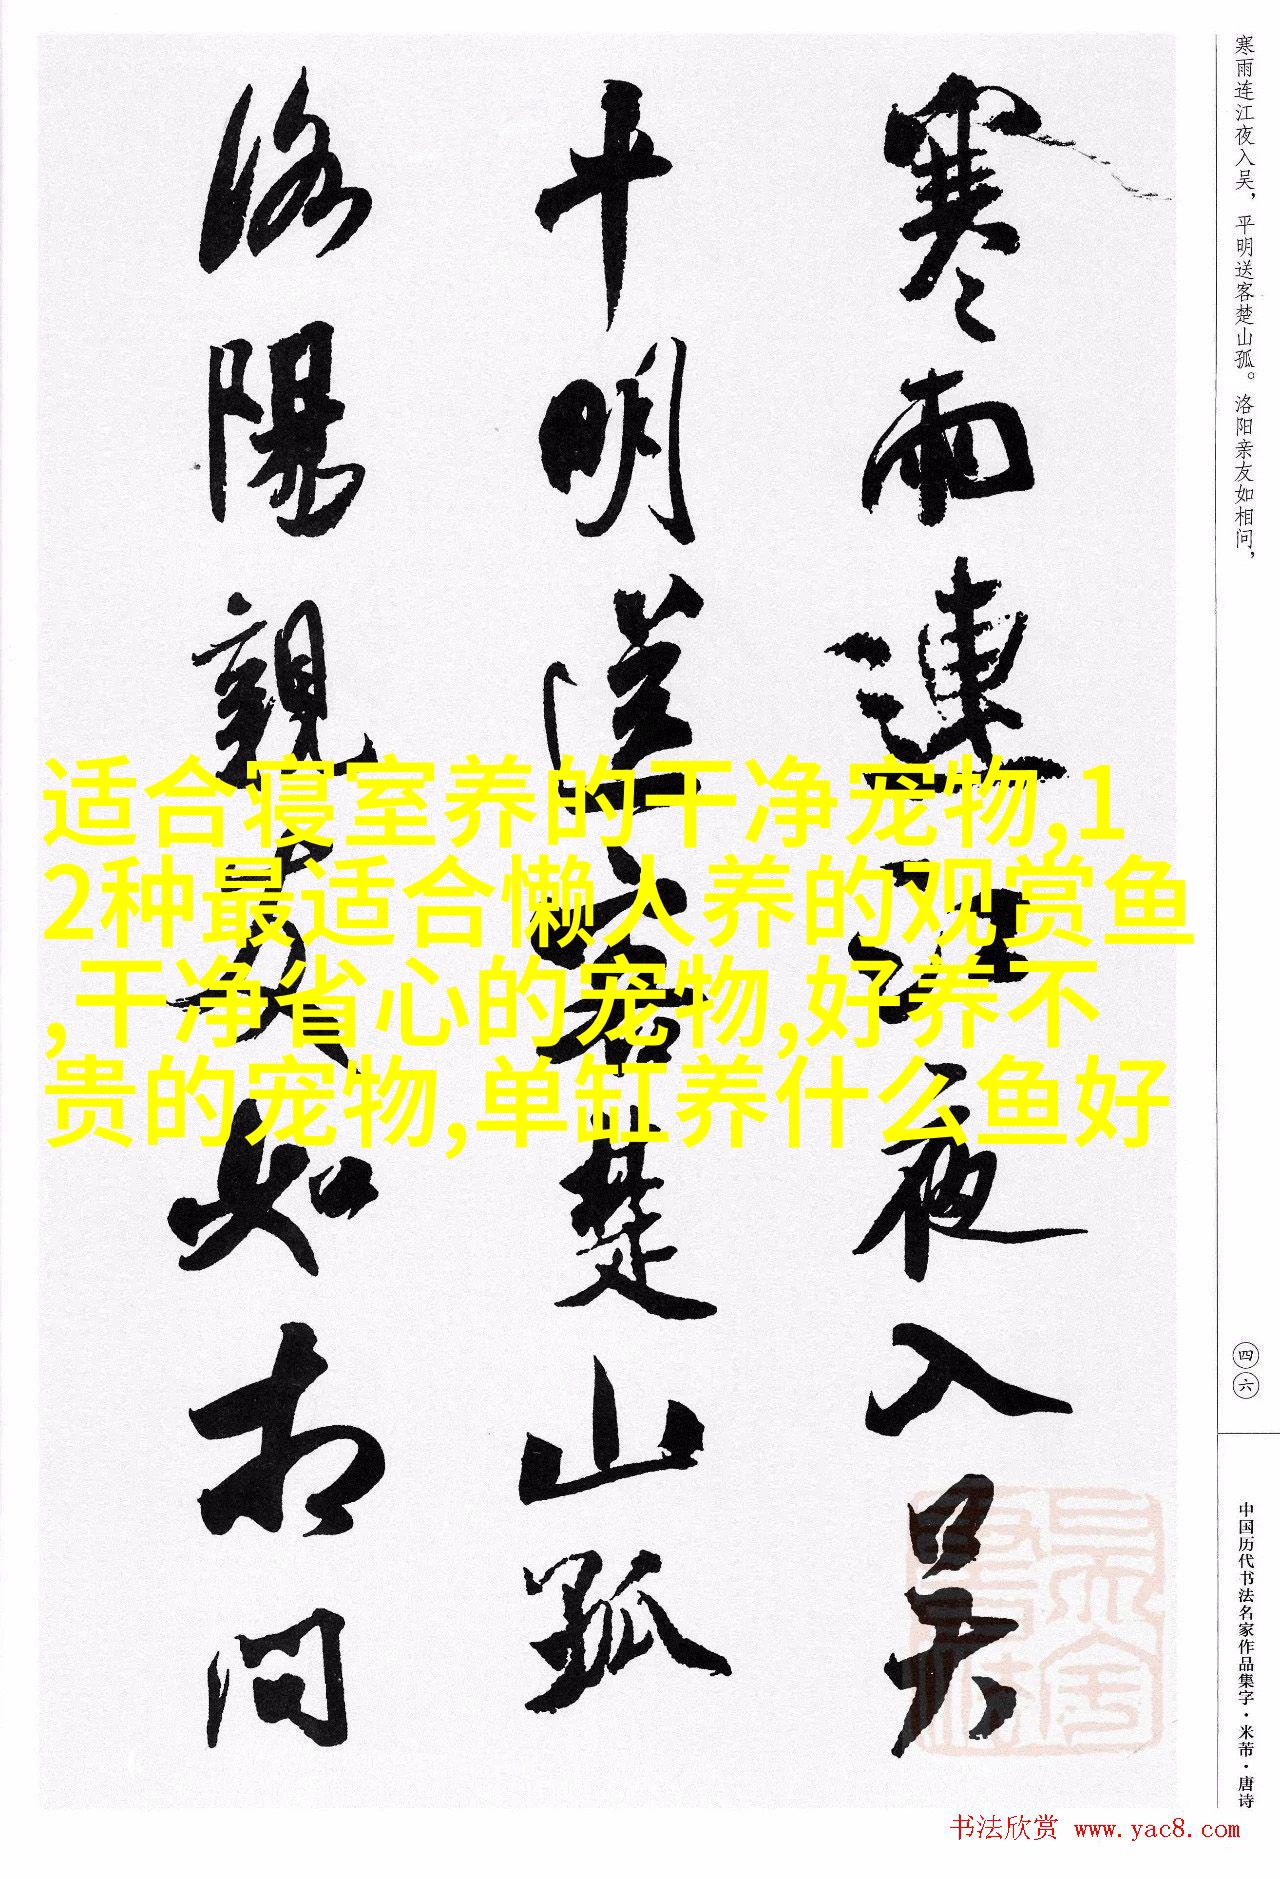 寒雨连江夜入吴，平明送客楚山孤。洛阳亲友如相问，
四六
中国历代书法名家作品集字·米芾·唐诗
寒雨連江夜入吴
平明送客楚山孤
洛陽親友如相问
适合寝室养的干净宠物,1
2种最适合懒人养的观赏鱼
,干净省心的宠物,好养不
贵的宠物,单缸养什么鱼好
书法欣赏 www.yac8.com